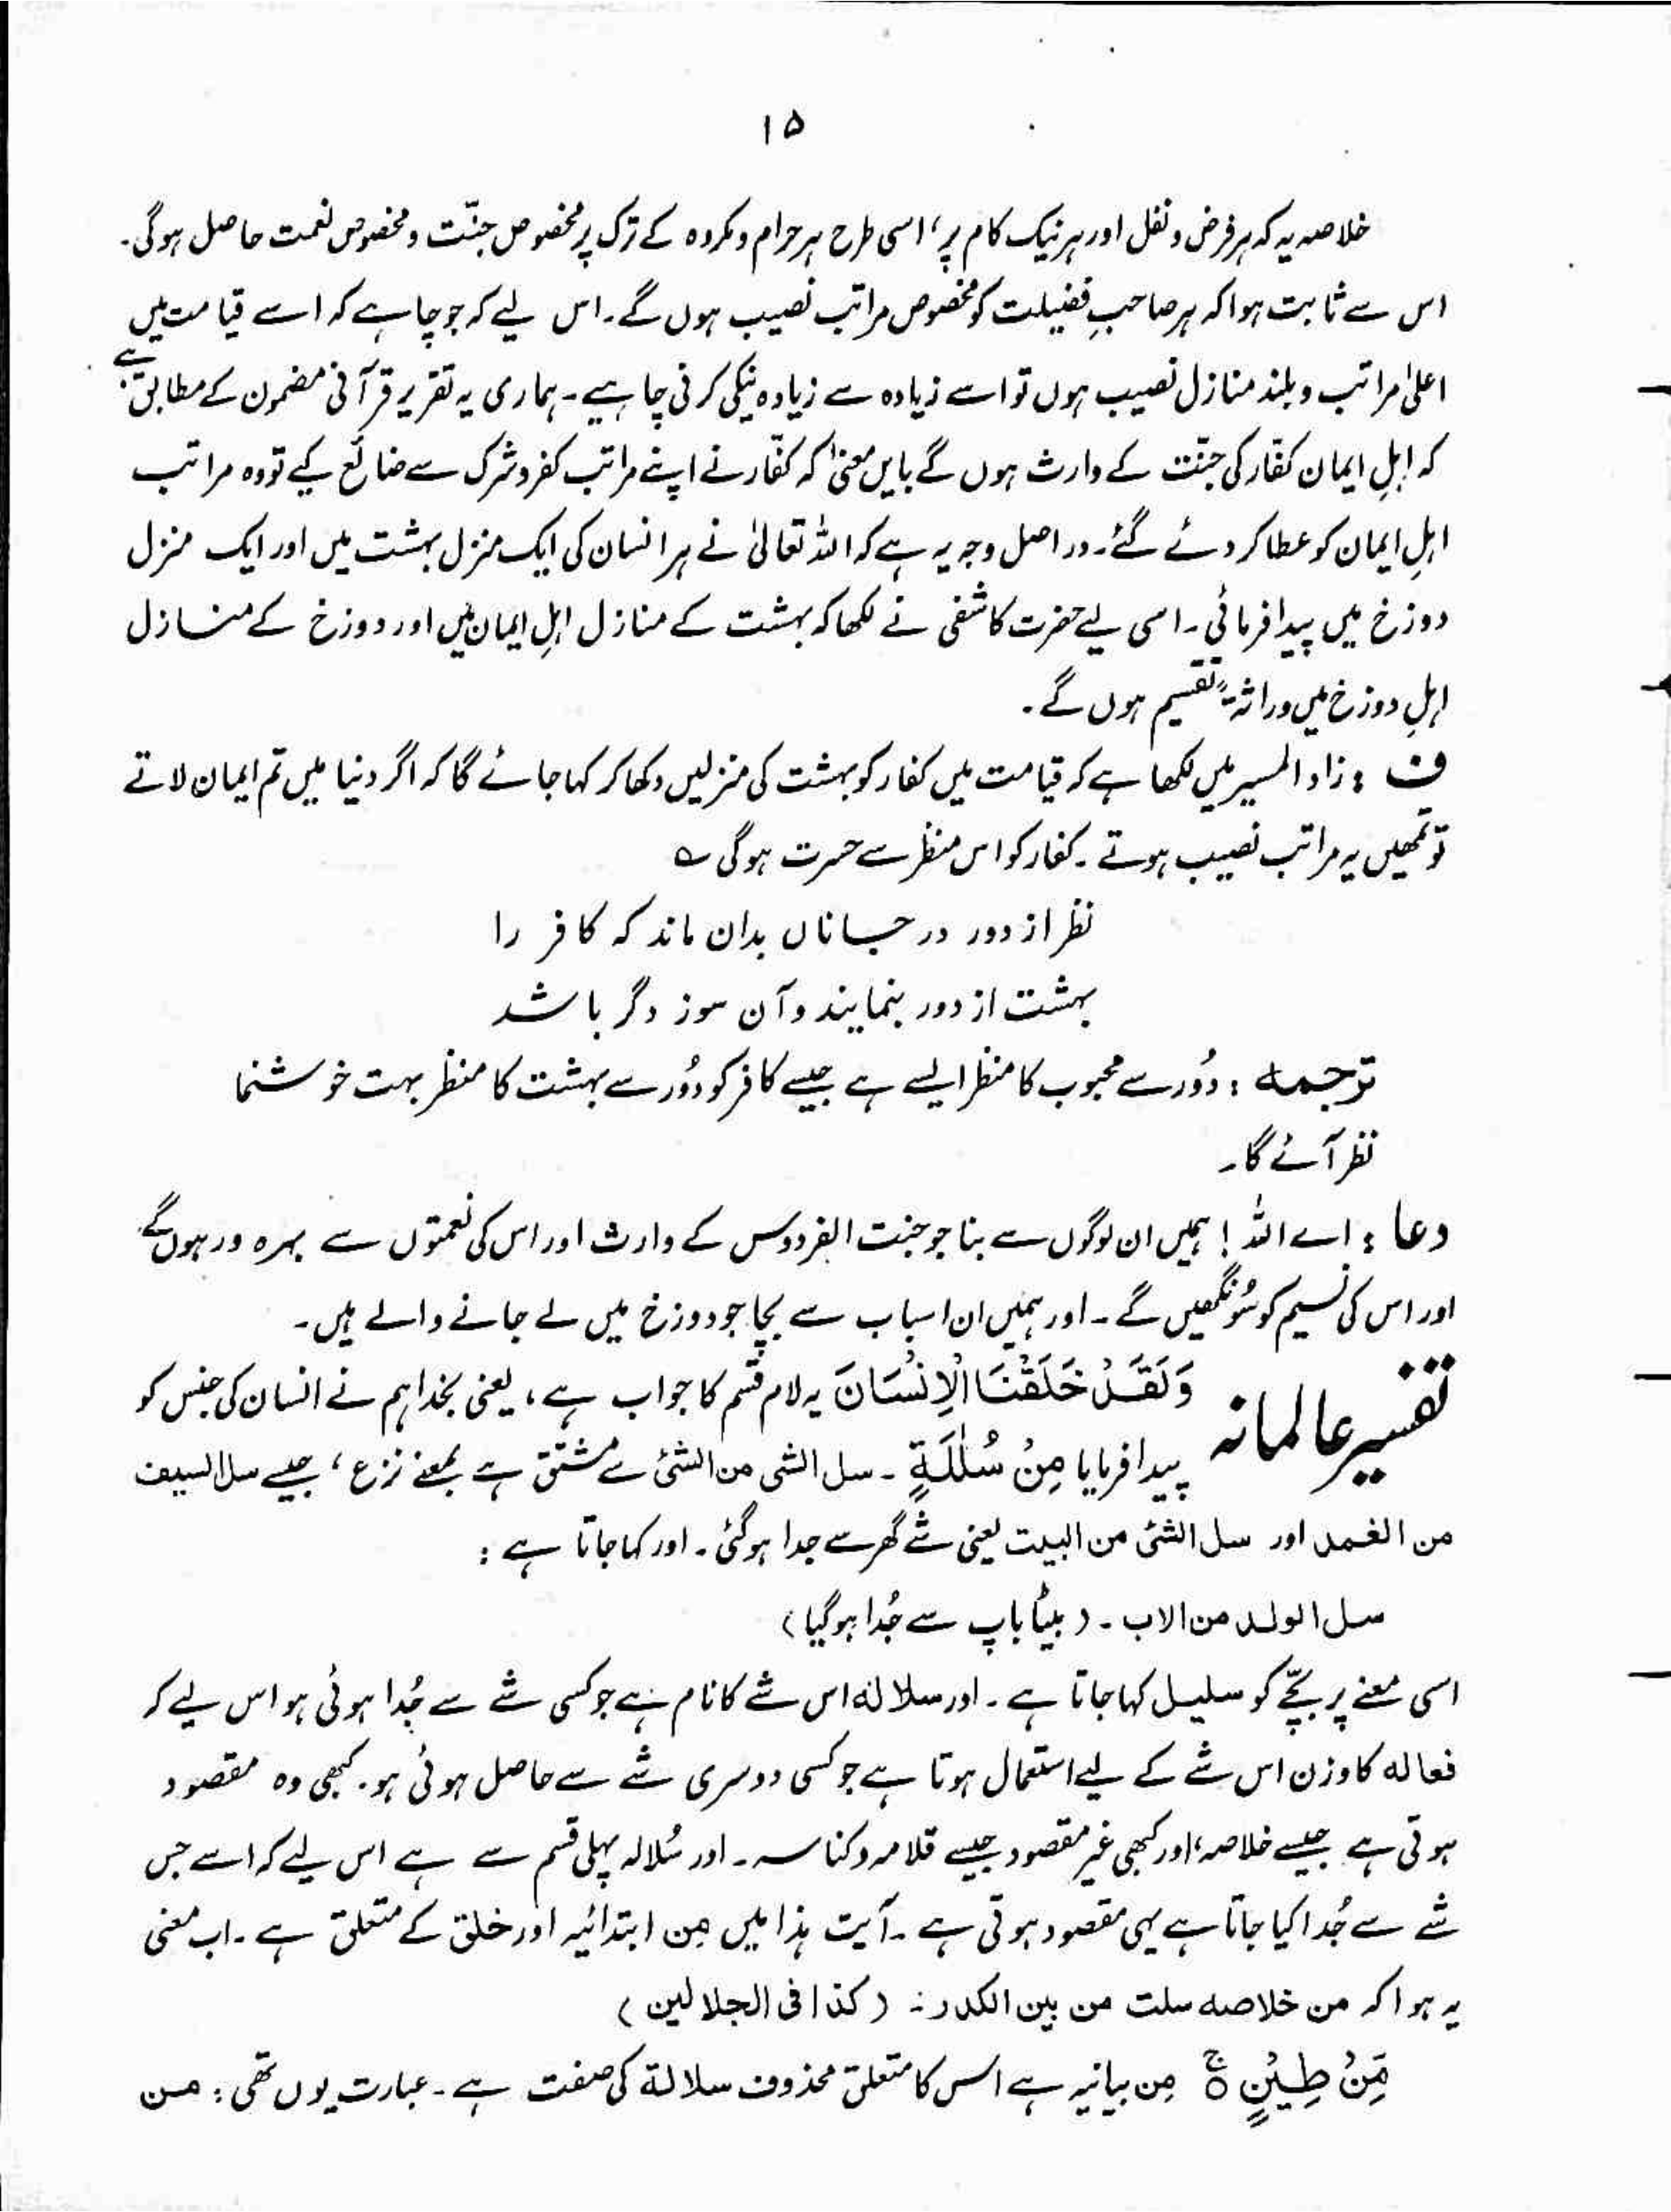 ۱۵
خلاصہ یہ کہ ہر فرض و نفل اور ہر نیک کام پر، اسی طرح ہر حرام و مکروہ کے ترک پر مخصوص جنّت و مخصوص نعمت حاصل ہوگی۔
اس سے ثابت ہوا کہ ہر صاحبِ فضیلت کو مخصوص مراتب نصیب ہوں گے۔ اس لیے کہ جو چاہے کہ اسے قیامت میں
اعلیٰ مراتب و بلند منازل نصیب ہوں تو اسے زیادہ سے زیادہ نیکی کرنی چاہیے۔ ہماری یہ تقریر قرآنی مضمون کے مطابق ہے
کہ اہلِ ایمان کفّار کی جنّت کے وارث ہوں گے بایں معنیٰ کہ کفّار نے اپنے مراتب کفر و شرک سے ضائع کیے تو وہ مراتب
اہلِ ایمان کو عطا کر دئے گئے۔ دراصل وجہ یہ ہے کہ اللہ تعالیٰ نے ہر انسان کی ایک منزل بہشت میں اور ایک منزل
دوزخ میں پیدا فرمائی۔ اسی لیے حضرت کاشفی نے لکھا کہ بہشت کے منازل اہلِ ایمان میں اور دوزخ کے منازل
اہلِ دوزخ میں وراثۃً تقسیم ہوں گے۔
ف : زاد المسیر میں لکھا ہے کہ قیامت میں کفار کو بہشت کی منزلیں دکھا کر کہا جائے گا کہ اگر دنیا میں تم ایمان لاتے
تو تمھیں یہ مراتب نصیب ہوتے۔ کفار کو اس منظر سے حسرت ہوگی ؎
نظر از دور در جاناں بدان ماند کہ کافر را
بہشت از دور بنمایند و آن سوز دگر باشد
ترجمہ : دُور سے محبوب کا منظر ایسے ہے جیسے کافر کو دُور سے بہشت کا منظر بہت خوشنما
نظر آئے گا۔
دعا : اے اللہ ! ہمیں ان لوگوں سے بنا جو جنت الفردوس کے وارث اور اس کی نعمتوں سے بہرہ ور ہوں گے
اور اس کی نسیم کو سُونگھیں گے۔ اور ہمیں ان اسباب سے بچا جو دوزخ میں لے جانے والے ہیں۔
تفسیر عالمانہ وَلَقَدْ خَلَقْنَا الْاِنْسَانَ یہ لام قسم کا جواب ہے، یعنی بخدا ہم نے انسان کی جنس کو
پیدا فرمایا مِنْ سُلٰلَةٍ ۔ سل الشی من الشئ سے مشتق ہے بمعنے نزع، جیسے سل السیف
من الغمد اور سل الشئ من البیت یعنی شے گھر سے جدا ہوگئی۔ اور کہا جاتا ہے :
سل الولد من الاب ۔ (بیٹا باپ سے جُدا ہوگیا)
اسی معنے پر بچّے کو سلیل کہا جاتا ہے۔ اور سلالہ اس شے کا نام ہے جو کسی شے سے جُدا ہوئی ہو اس لیے کہ
فعالہ کا وزن اس شے کے لیے استعمال ہوتا ہے جو کسی دوسری شے سے حاصل ہوئی ہو۔ کبھی وہ مقصود
ہوتی ہے جیسے خلاصہ، اور کبھی غیر مقصود جیسے قلامہ و کناسہ۔ اور سُلالہ پہلی قسم سے ہے اس لیے کہ اسے جس
شے سے جُدا کیا جاتا ہے یہی مقصود ہوتی ہے۔ آیت ہذا میں مِن ابتدائیہ اور خلق کے متعلق ہے۔ اب معنی
یہ ہوا کہ من خلاصہ سلت من بین الکدر ۔ (کذا فی الجلالین)
مِّنْ طِيْنٍ ۚ مِن بیانیہ ہے اس کا متعلق محذوف سلالة کی صفت ہے۔ عبارت یوں تھی : من